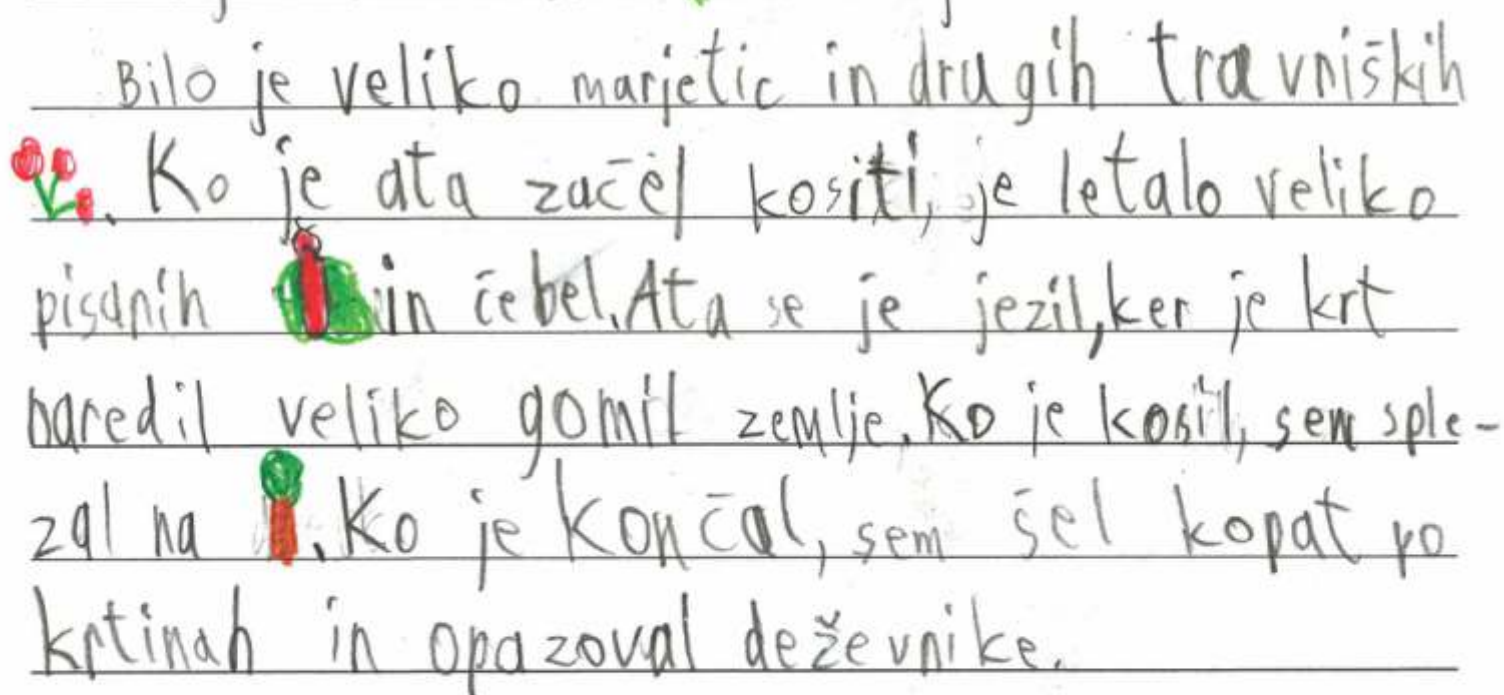 Bilo je veliko marjetic in drugih travniških
. Ko je ata začel kositi, je letalo veliko
pisanih in čebel. Ata se je jezil, ker je krt
naredil veliko gomil zemlje. Ko je kosil, sem sple-
zal na . Ko je končal, sem šel kopat po
krtinah in opazoval deževnike.